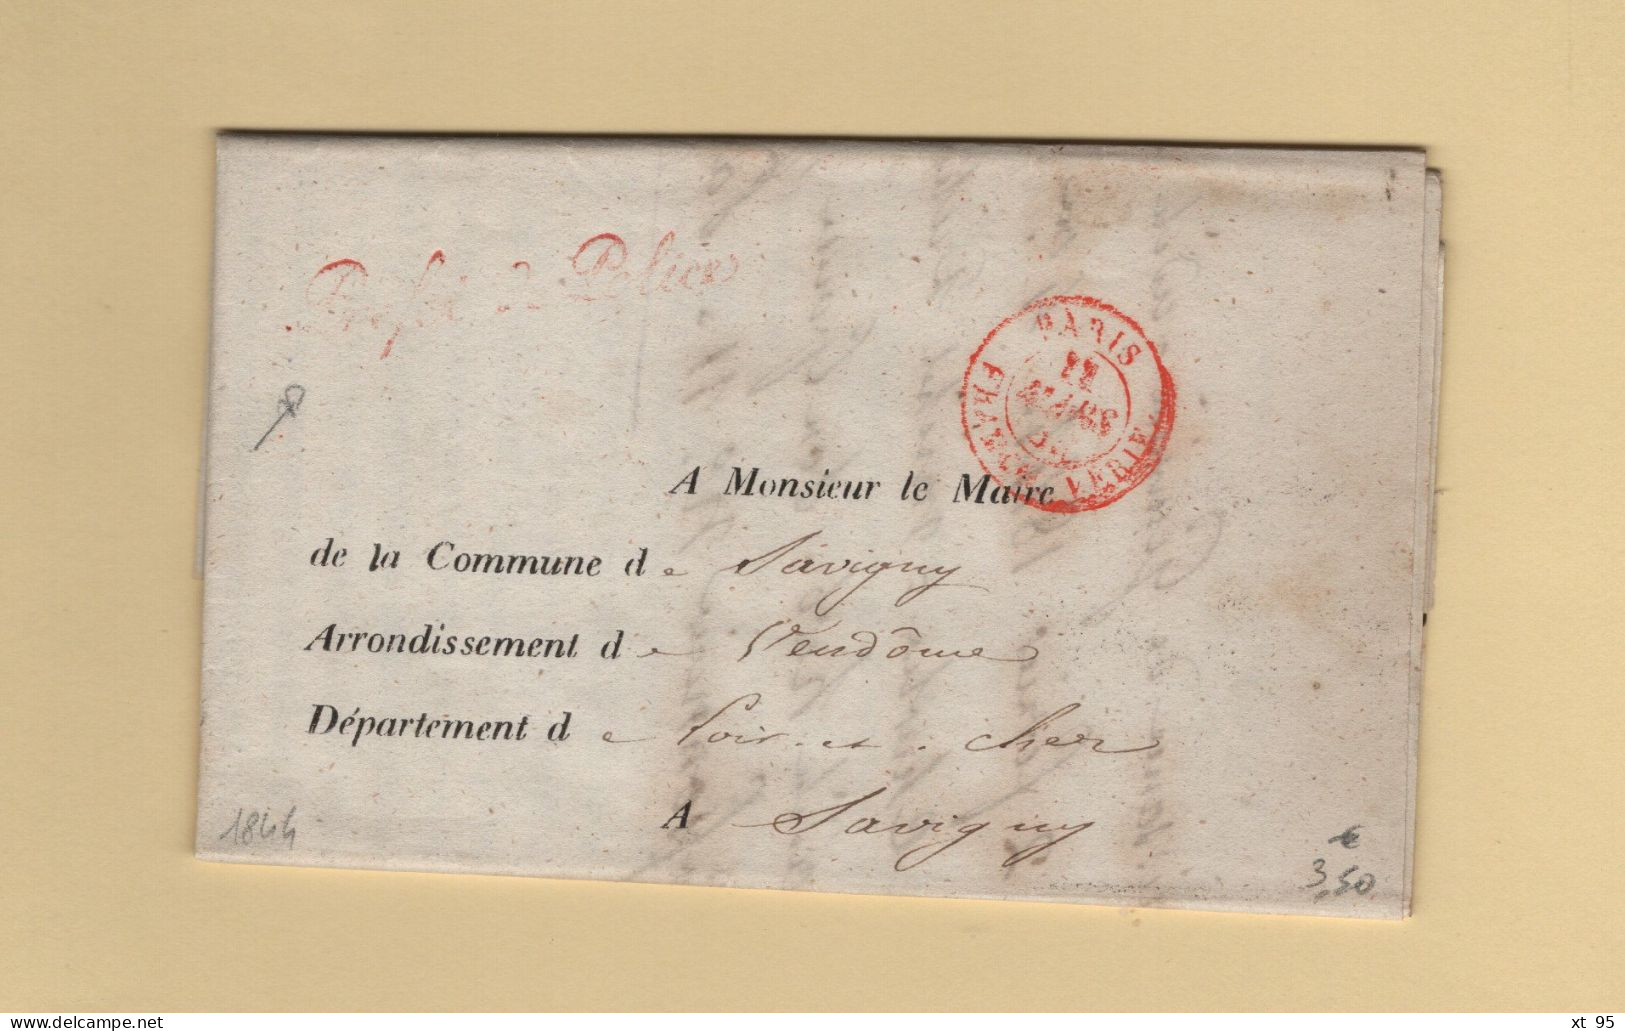 Préfre de Police
PARIS
11
MARS
FRANCHISE
A Monsieur le Maire
de la Commune de Savigny
Arrondissement de Vendôme
Département de Loir-et-cher
A Savigny
1844
€
3,50
xt 95